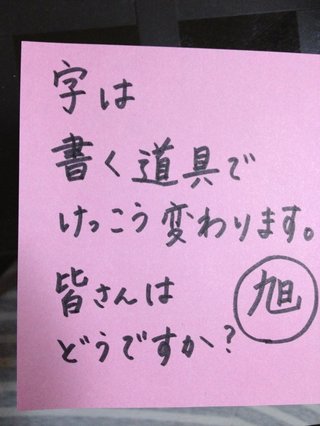 字は
書く道具で
けっこう変わります。
皆さんは
どうですか?
旭